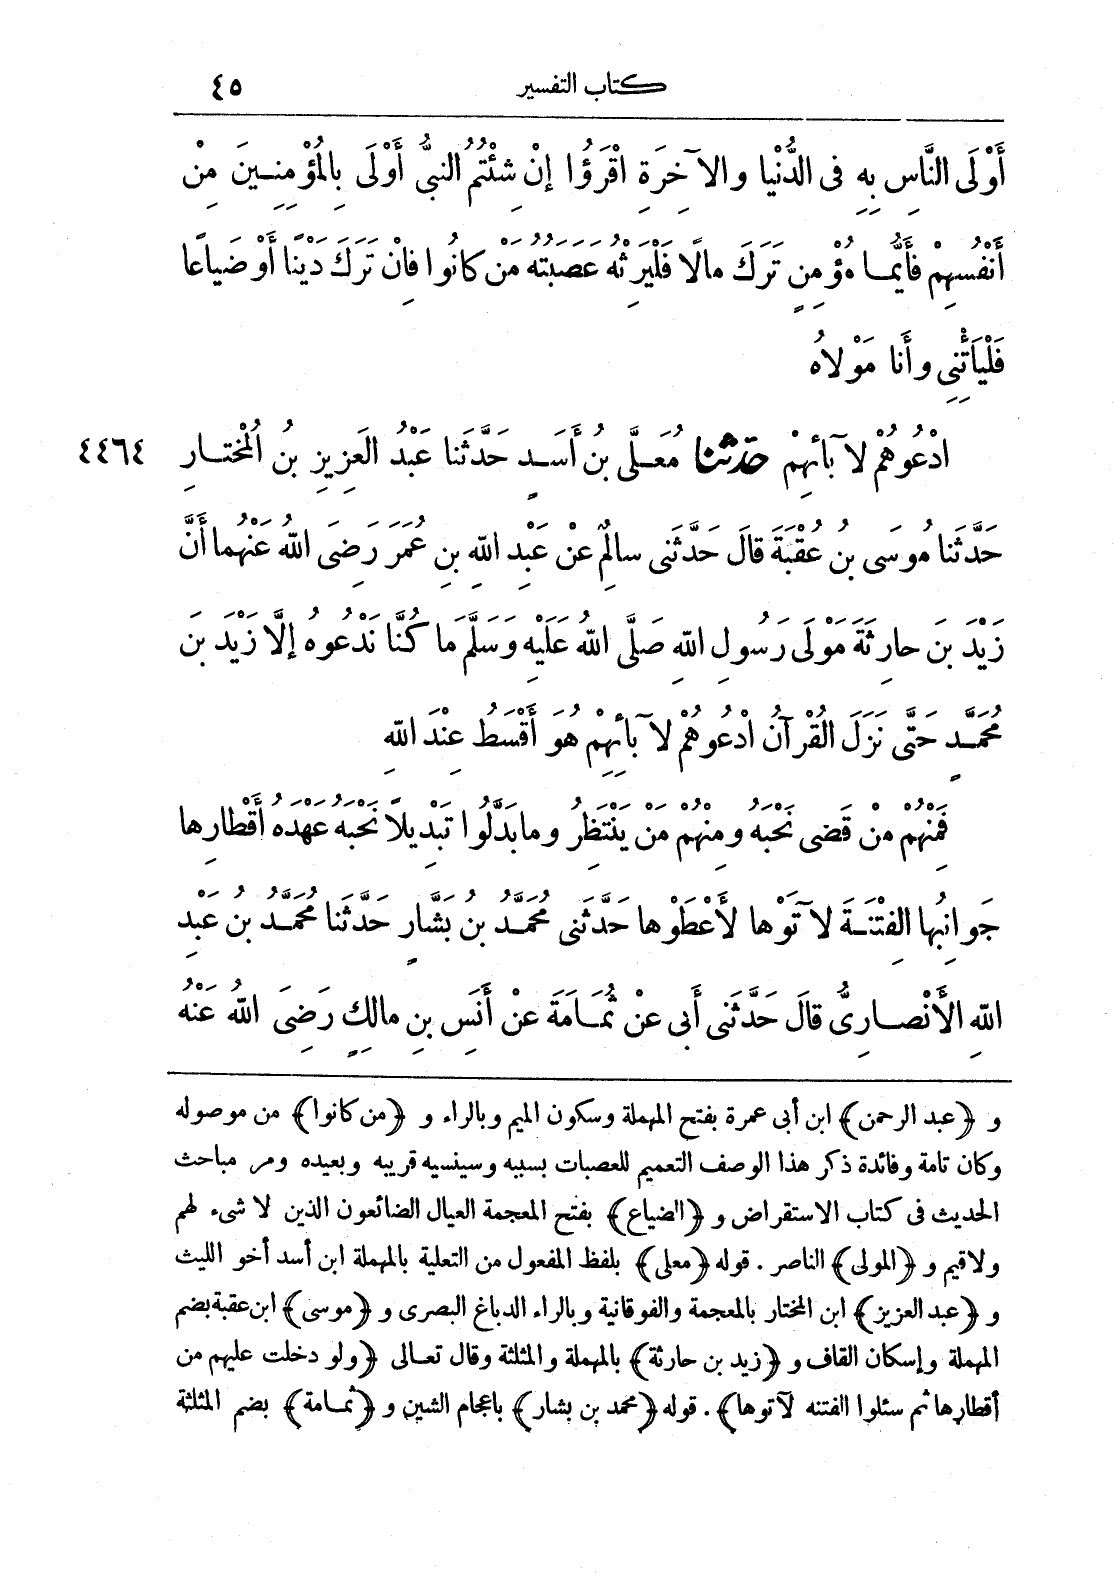 كتاب التفسير ٤٥
أَوْلَى النَّاسِ بِهِ فى الدُّنْيا والآخِرَةِ اقْرَؤُا إنْ شِئْتُمُ النبيُّ أَوْلَى بِالْمُؤْمِنِينَ مِنْ
أَنْفُسِهِمْ فَأَيُّما مُؤْمِنٍ تَرَكَ مالًا فَلْيَرِثْهُ عَصَبَتُهُ مَنْ كانُوا فإنْ تَرَكَ دَيْنًا أَوْ ضَياعًا
فَلْيَأْتِنِى وأَنا مَوْلاهُ
٤٤٦٤ ادْعُوهُمْ لِآبائِهِمْ حَدَّثَنَا مُعَلَّى بنُ أَسَدٍ حَدَّثَنا عَبْدُ العَزِيزِ بنُ المُخْتارِ
حَدَّثَنا مُوسَى بنُ عُقْبَةَ قالَ حَدَّثَنى سالِمٌ عنْ عَبْدِ اللهِ بنِ عُمَرَ رَضِىَ اللهُ عَنْهُما أنَّ
زَيْدَ بنَ حارِثَةَ مَوْلَى رَسُولِ اللهِ صَلَّى اللهُ عَلَيْهِ وَسَلَّمَ ما كُنَّا نَدْعُوهُ إلَّا زَيْدَ بنَ
مُحَمَّدٍ حَتَّى نَزَلَ القُرْآنُ ادْعُوهُمْ لِآبائِهِمْ هُوَ أَقْسَطُ عِنْدَ اللهِ
فَمِنْهُمْ مَنْ قَضى نَحْبَهُ ومِنْهُمْ مَنْ يَنْتَظِرُ وما بَدَّلُوا تَبْدِيلًا نَحْبَهُ عَهْدَهُ أَقْطارِها
جَوانِبُها الفِتْنَةَ لَآتَوْها لَأَعْطَوْها حَدَّثَنى مُحَمَّدُ بنُ بَشَّارٍ حَدَّثَنا مُحَمَّدُ بنُ عَبْدِ
اللهِ الأَنْصارِىُّ قالَ حَدَّثَنى أَبى عنْ ثُمَامَةَ عنْ أَنَسِ بنِ مالِكٍ رَضِىَ اللهُ عَنْهُ
و ﴿عبد الرحمن﴾ ابن أبى عمرة بفتح المهملة وسكون الميم وبالراء و ﴿من كانوا﴾ من موصوله
وكان تامة وفائدة ذكر هذا الوصف التعميم للعصبات بسببه وسينسيه قريبه وبعيده ومر مباحث
الحديث فى كتاب الاستقراض و ﴿الضياع﴾ بفتح المعجمة العيال الضائعون الذين لا شىء لهم
ولاقيم و ﴿المولى﴾ الناصر . قوله ﴿معلى﴾ بلفظ المفعول من التعلية بالمهملة ابن أسد أخو الليث
و ﴿عبد العزيز﴾ ابن المختار بالمعجمة والفوقانية وبالراء الدباغ البصرى و ﴿موسى﴾ ابن عقبة بضم
المهملة وإسكان القاف و ﴿زيد بن حارثة﴾ بالمهملة والمثلثة وقال تعالى ﴿ولو دخلت عليهم من
أقطارها ثم سئلوا الفتنه لآتوها﴾ . قوله ﴿محمد بن بشار﴾ باعجام الشين و ﴿ثمامة﴾ بضم المثلثة